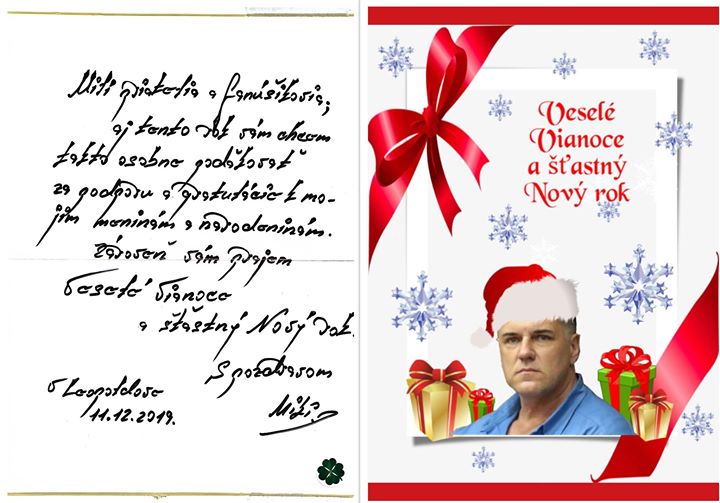 Milí priatelia a fanúšikovia,
aj tento rok vám chcem
takto osobne poďakovať
za podporu a gratulácie k mo-
jim meninám a narodeninám.
Zároveň vám prajem
Veselé Vianoce
a šťastný Nový rok.
S pozdravom
V Leopoldove
11.12.2019.
Veselé
Vianoce
a šťastný
Nový rok